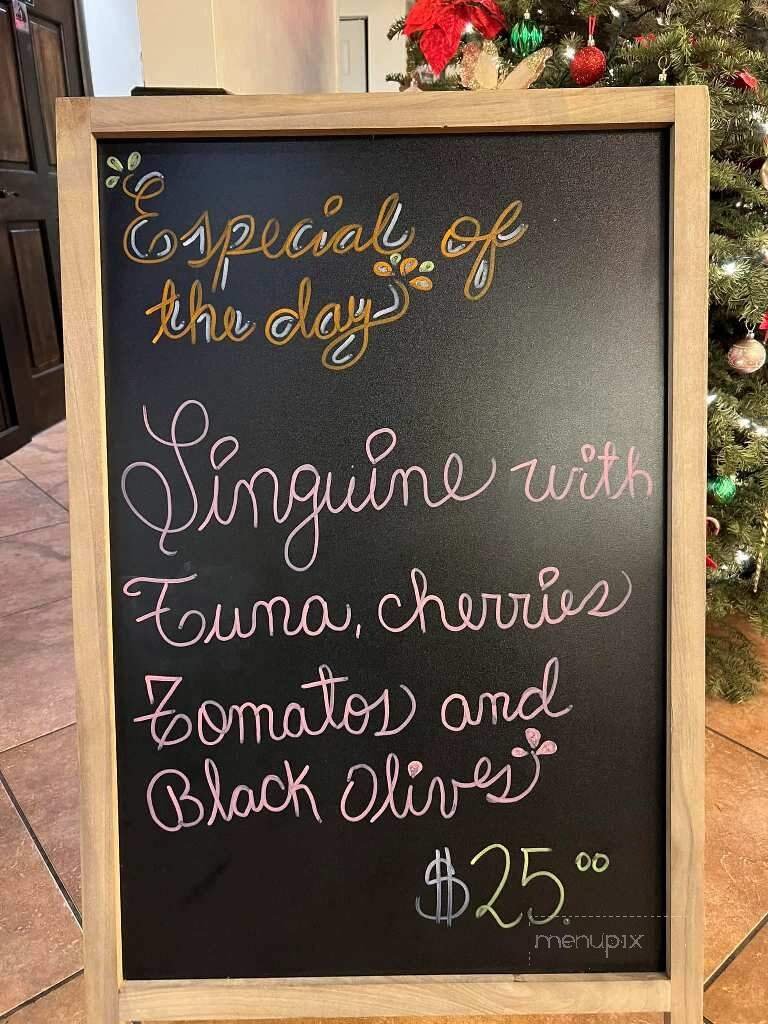 Especial of
the day
Linguine with
Tuna, cherries
Tomatos and
Black Olives
$25.00
menupix